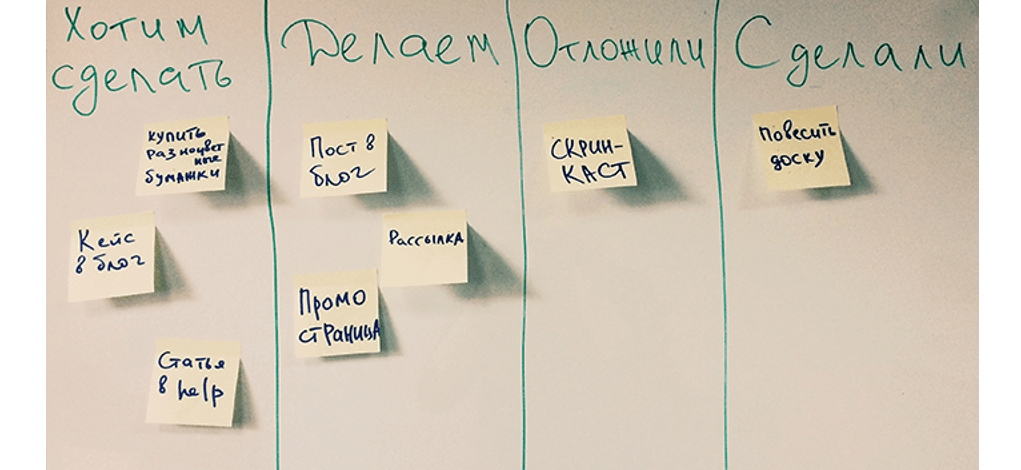 Хотим
сделать
купить
разноцвет
ные
бумажки
Кейс
в блог
Статья
в help
Делаем
Пост в
блог
Рассылка
Промо
страница
Отложили
СКРИН-
КАСТ
Сделали
Повесить
доску